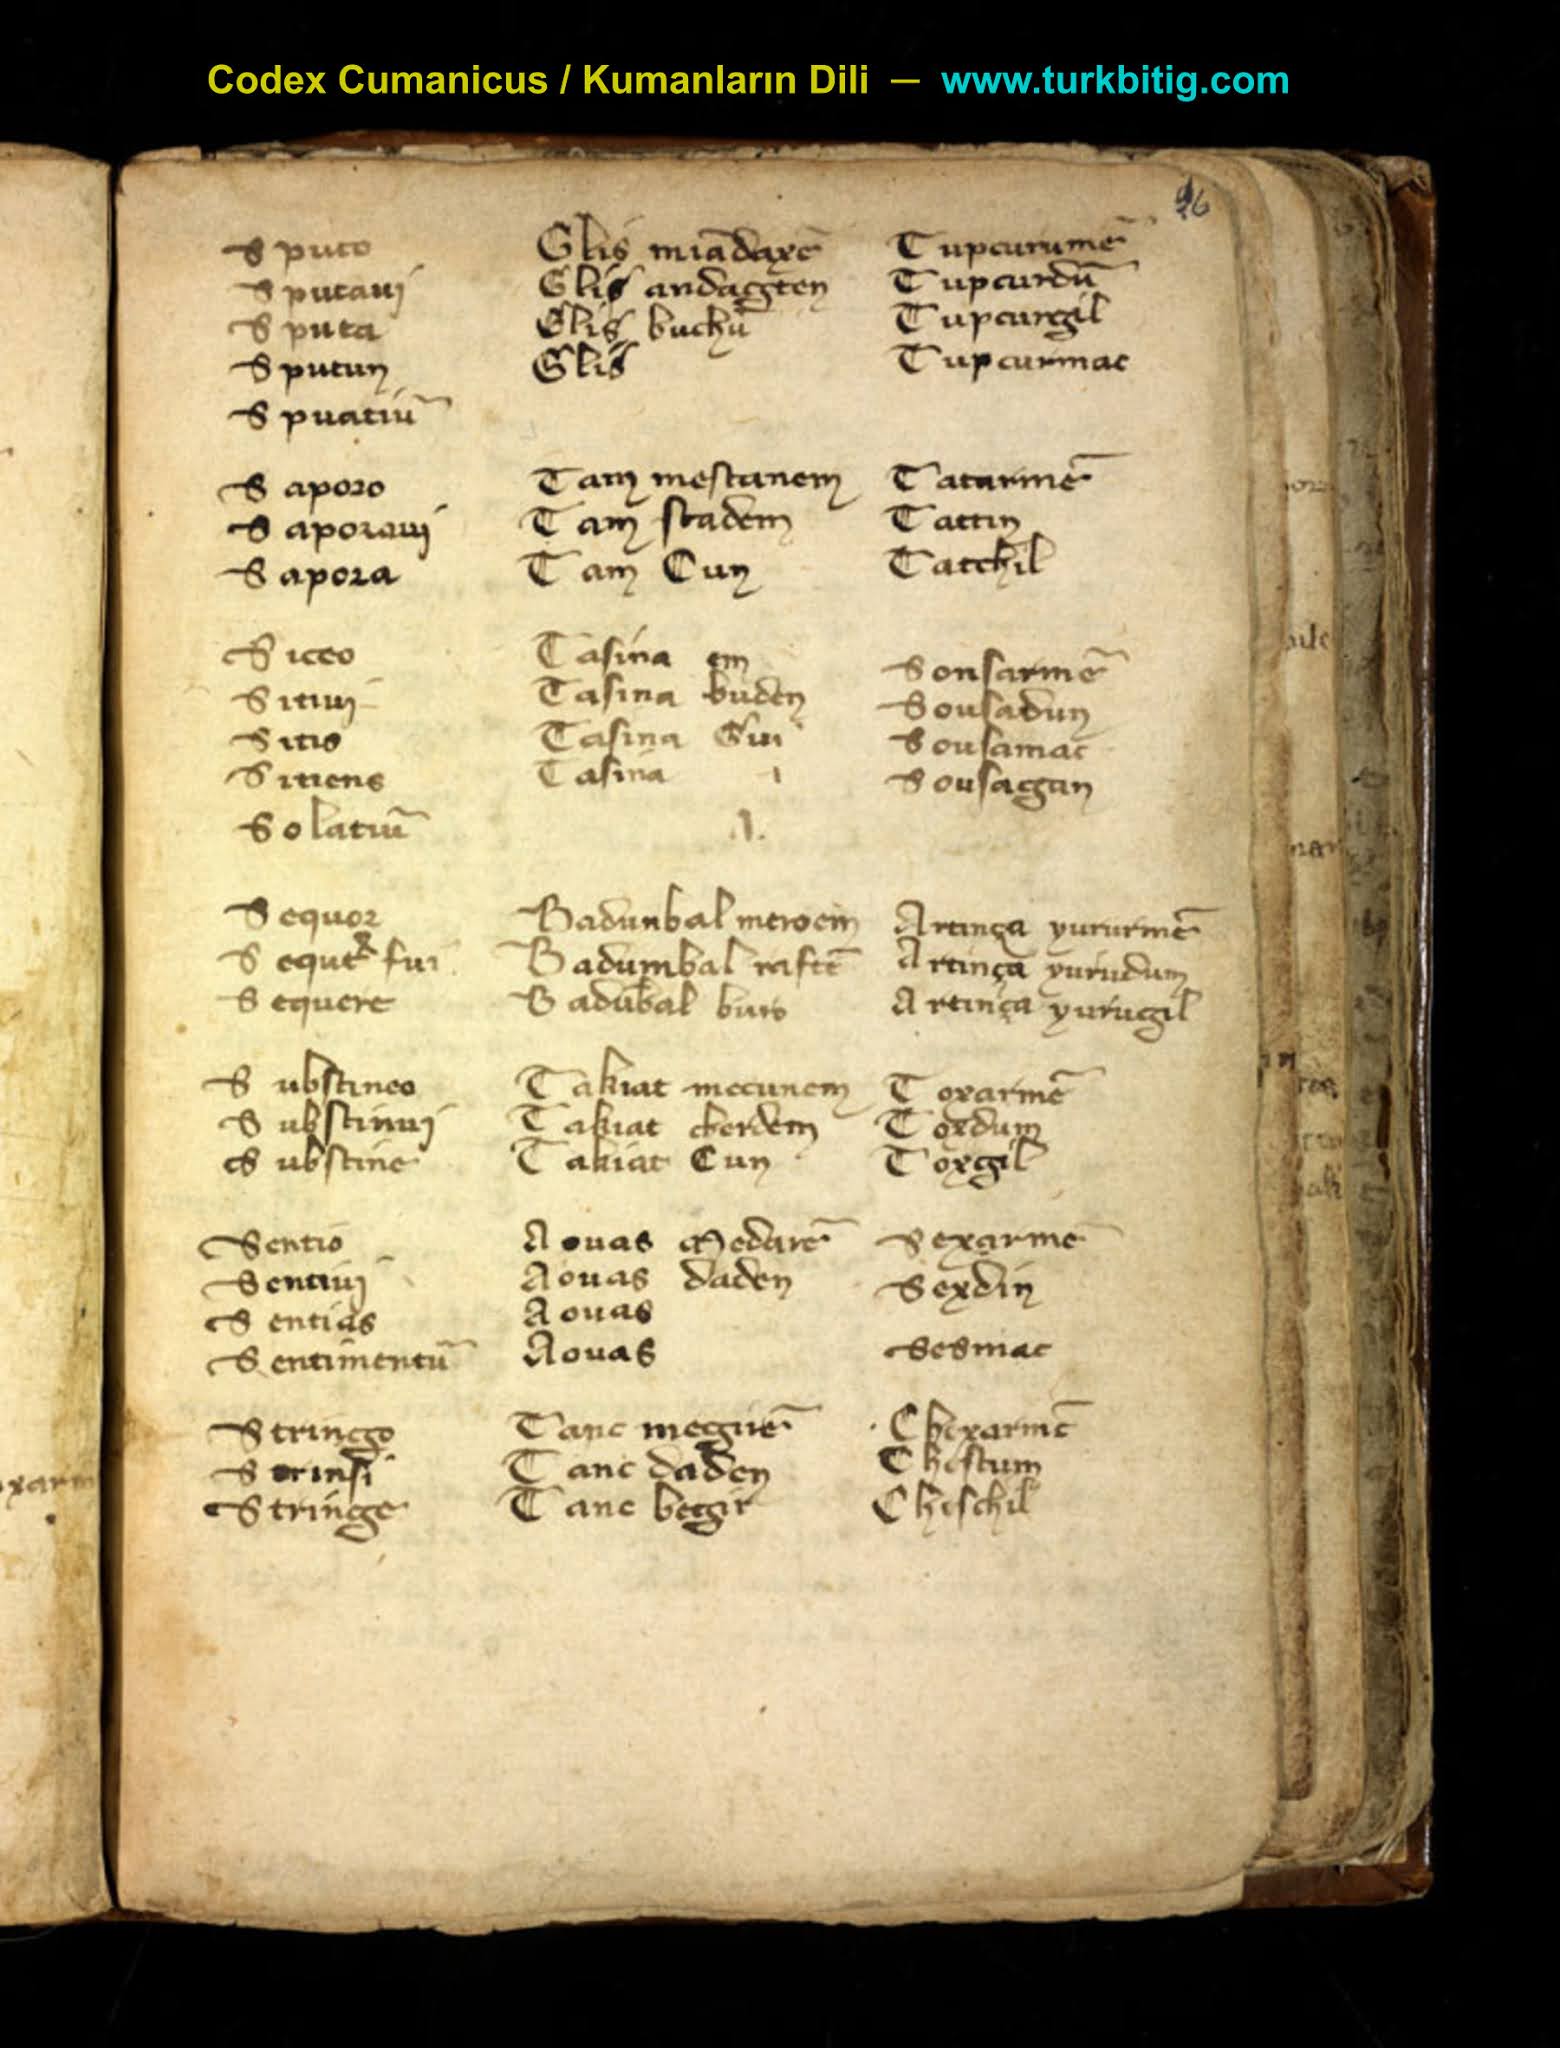 Codex Cumanicus / Kumanların Dili — www.turkbitig.com
26
Sputo Glis miādaxē Tupcurumē
Sputaui Glis andacgten Tupcurdū
Sputa Glis buchū Tupcurgil
Sputun Glis Tupcurmac
Spuatiū
Saporo Tam mestanem Tatarmē
Saporaui Tam stadem Tattin
Sapora Tam Cun Tatchil
Siceo Tasina em Sonsarmē
Sitiui Tasina buden Sousadun
Sitis Tasina Gui Sousamac
Sitiens Tasina Sousagan
Solatiū
Sequor Badunbal meroem Artinça yururmē
Sequt fui Badumbal raftē Artinça yurudum
Sequere Badūbal buro Artinça yurugil
Substineo Takiat mecunem Toxarmē
Substinui Takiat cherdem Toxdum
Substine Takiat Cun Toxgil
Sentio Aouas Medarē Sexarmē
Sentiui Aouas daden Sexdin
Sentias Aouas
Sentimentū Aouas Sesmac
Stringo Tanc megirē Chexarmē
Strinsi Tanc daden Chestum
Stringe Tanc begir Cheschil